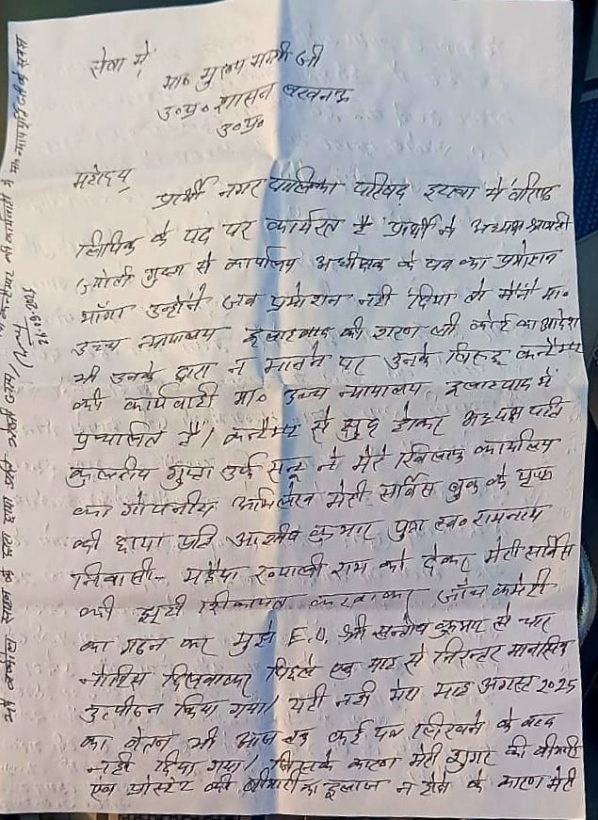 सेवा में,
मा० मुख्य मन्त्री जी
उ०प्र० शासन लखनऊ
उ०प्र०
महोदय
प्रार्थी नगर पालिका परिषद इटावा में वरिष्ठ
लिपिक के पद पर कार्यरत है प्रार्थी ने अध्यक्ष श्रीमती
ज्योती गुप्ता से कार्यालय अधीक्षक के पद का प्रमोशन
माँगा उन्होंने जब प्रमोशन नही दिया तो मैंने मा०
उच्च न्यायालय इलाहाबाद की शरण ली कोर्ट का आदेश
भी उनके द्वारा न मानने पर उनके विरुद्ध कन्टैम्प्ट
की कार्यवाही मा० उच्च न्यायालय इलाहाबाद में
प्रचलित है। कन्टैम्प्ट से क्षुब्ध होकर अध्यक्ष पति
गुप्ता उर्फ सन्टू ने मेरे खिलाफ कार्यालय
का गोपनीय अभिलेख मेरी सर्विस बुक के पृष्ठ
की छाया प्रति आशीष कुमार पुत्र स्व० रामनाथ
निवासी- मडैया राम को देकर मेरी सर्विस
की झूठी शिकायत करवाकर जाँच कमेटी
का गठन कर मुझे E.O. श्री सन्तोष कुमार से चार
नोटिस दिलवाकर पिछले एक माह से निरन्तर मानसिक
उत्पीडन किया गया। यही नही मेरा माह अगस्त 2025
का वेतन भी आज तक कई पत्र लिखने के बाद
नही दिया गया। जिसके कारण मेरी शुगर की बीमारी
एवं प्रोस्टेट की बीमारी का इलाज न होने के कारण मेरी